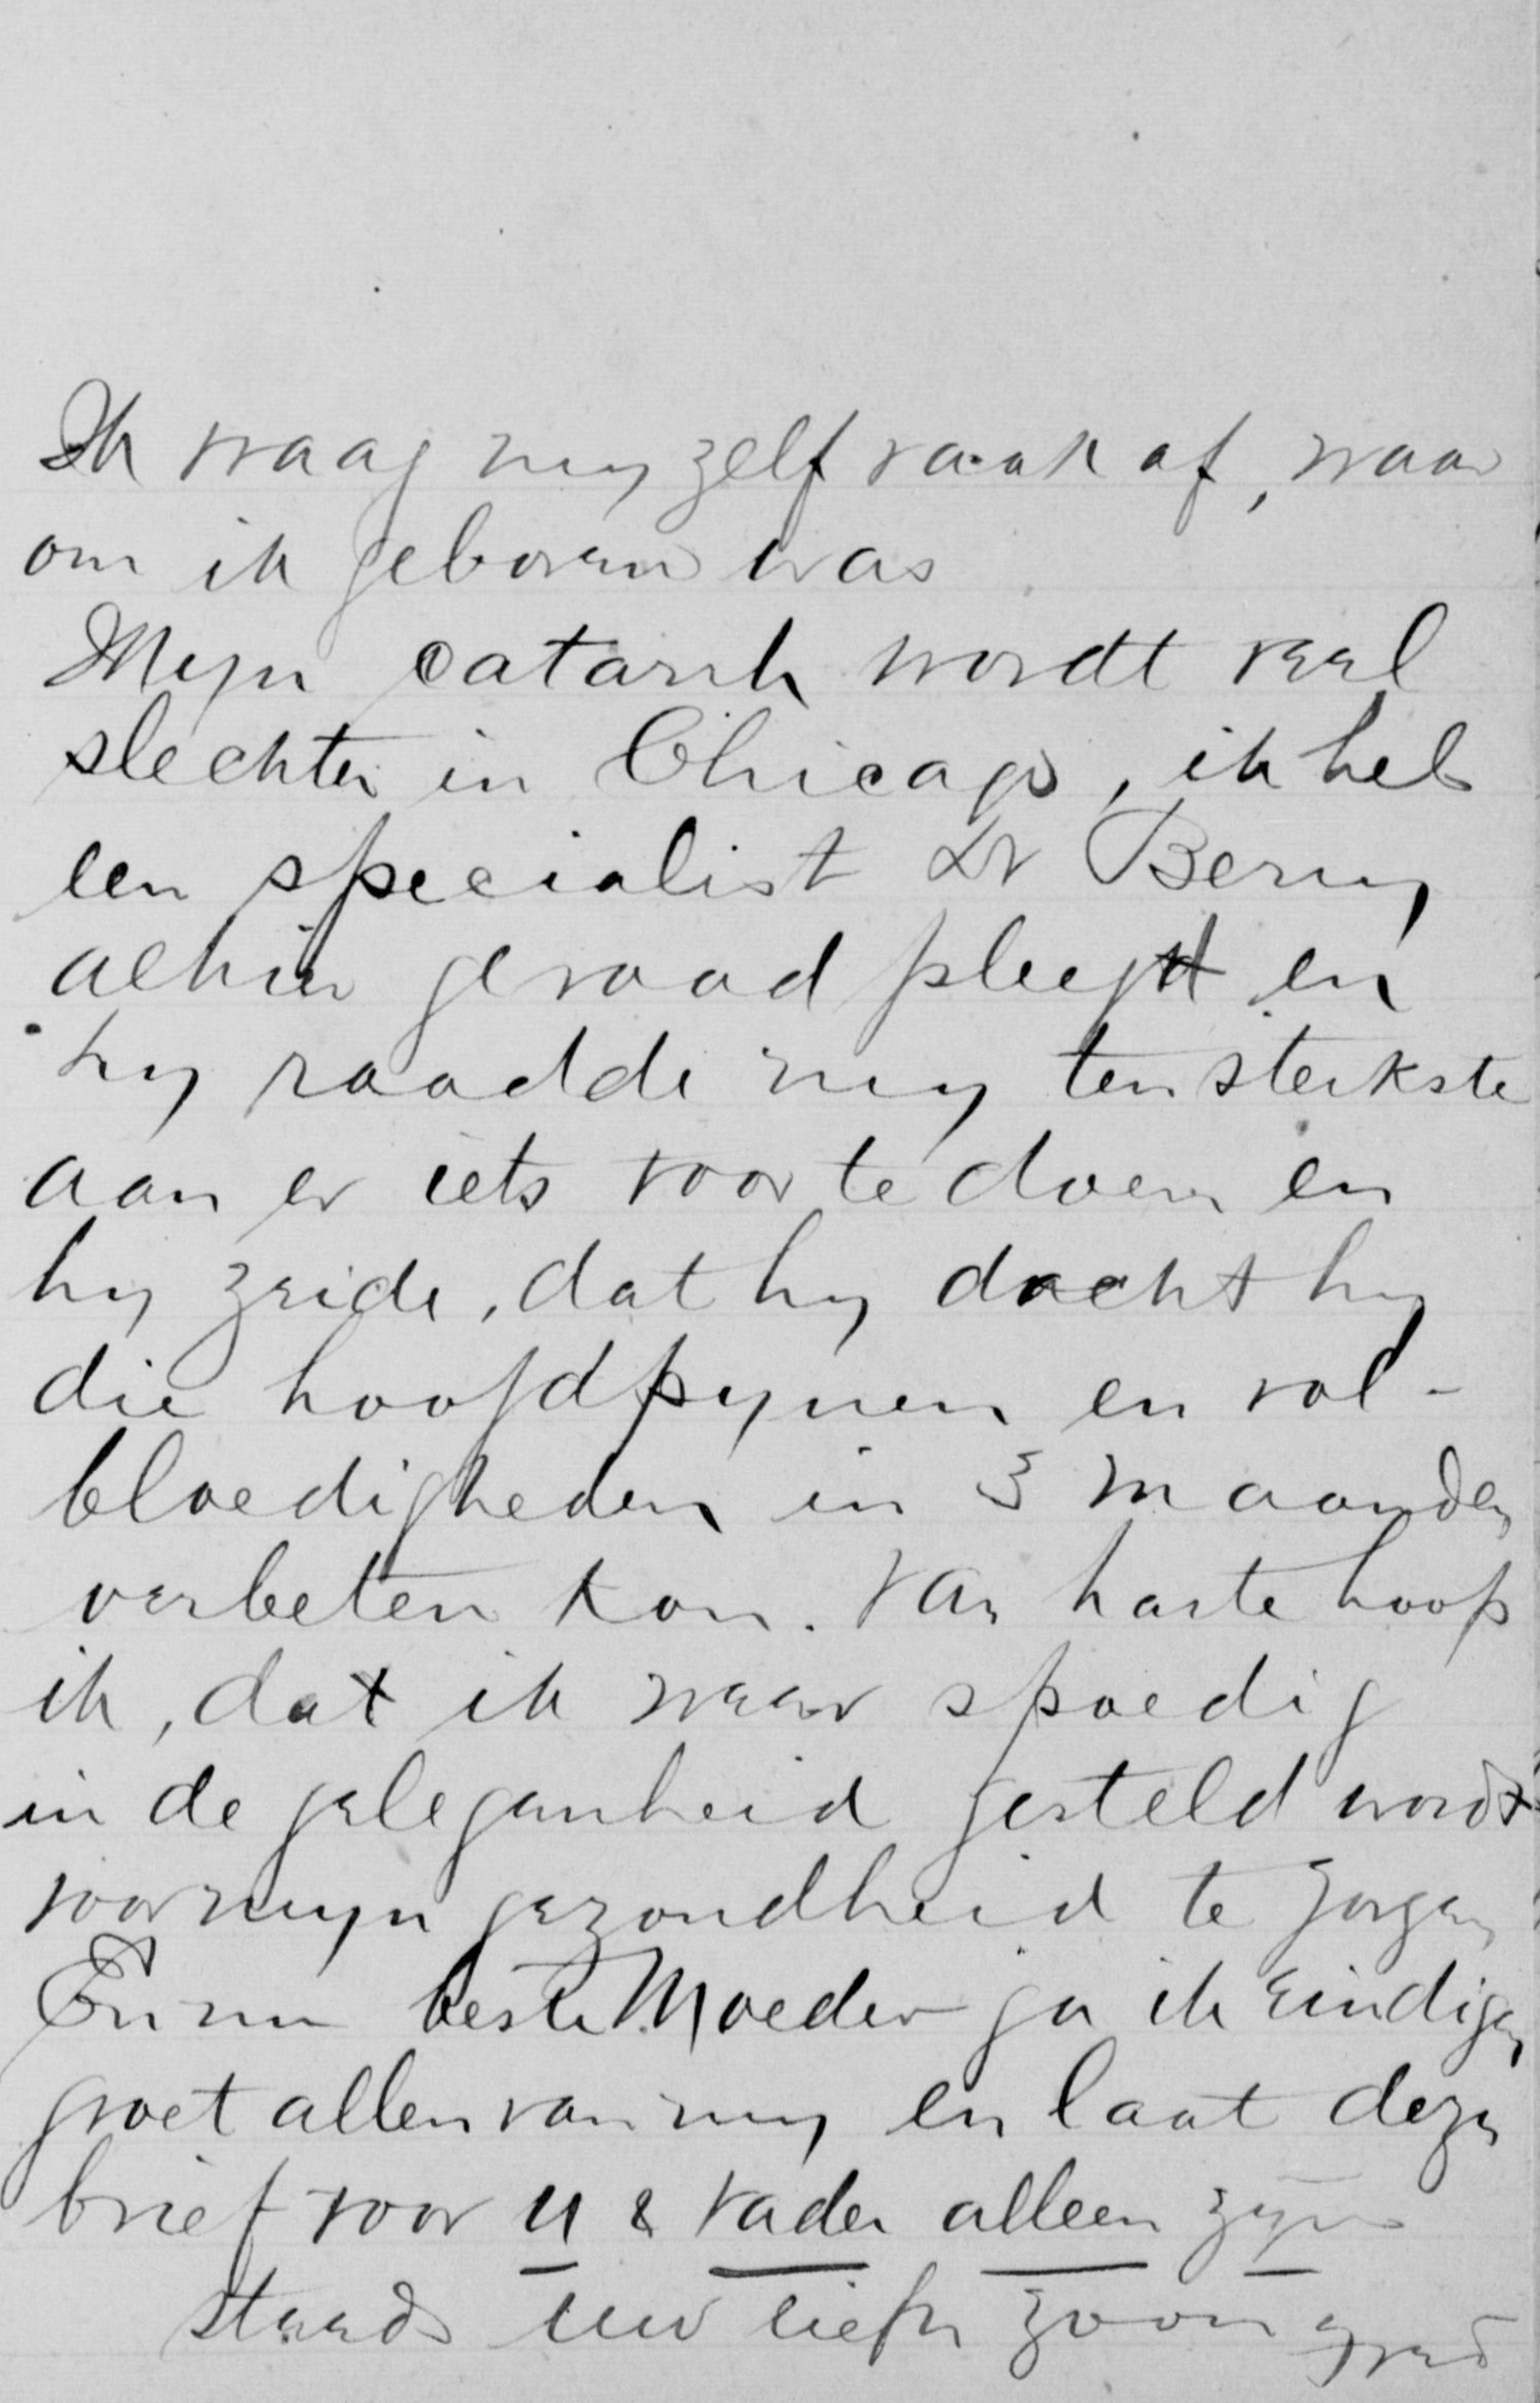 Ik vraag my zelf vaak af, waar
om ik geboren was
Myn catarrh wordt veel
slechter in Chicago, ik heb
een specialist Dr Berry
alhier geraad pleegd en
hy raadde my ten sterkste
aan er iets voor te doen en
hy zeide, dat hy dacht hy
die hoofdpynen en vol-
bloedigheden in 3 maanden
verbeten kon. Van harte hoop
ik, dat ik weer spoedig
in de gelegenheid gesteld wordt
voor myn gezondheid te zorgen
En nu beste Moeder ga ik eindigen
groet allen van my en laat dezen
brief voor U & Vader alleen zyn
steeds uw liefh zoon